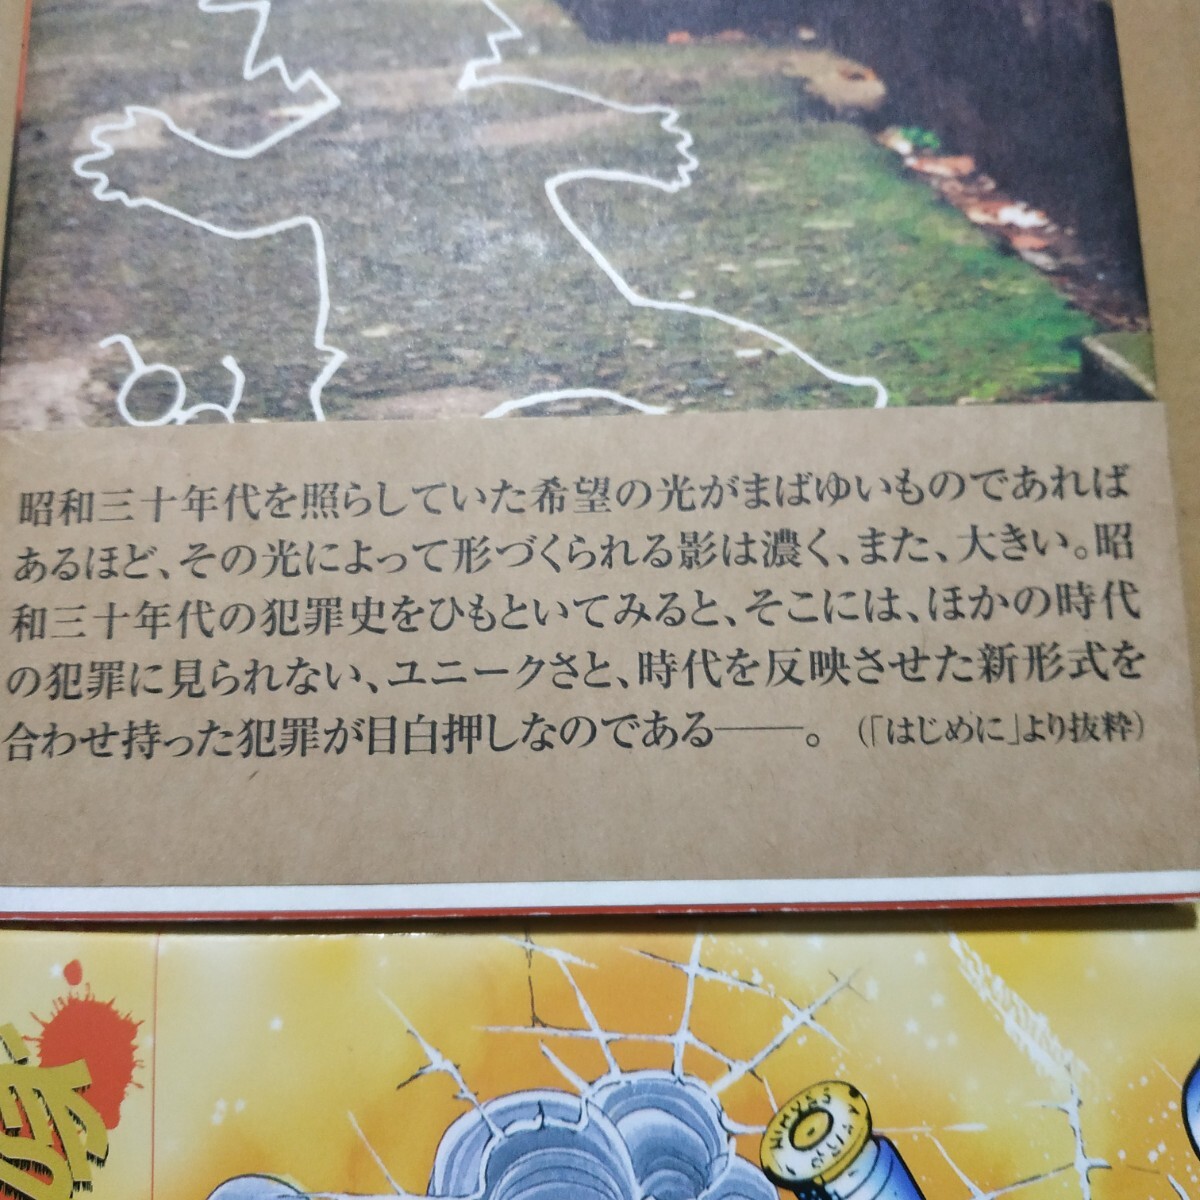 昭和三十年代を照らしていた希望の光がまばゆいものであれば
あるほど、その光によって形づくられる影は濃く、また、大きい。昭
和三十年代の犯罪史をひもといてみると、そこには、ほかの時代
の犯罪に見られない、ユニークさと、時代を反映させた新形式を
合わせ持った犯罪が目白押しなのである――。（「はじめに」より抜粋）